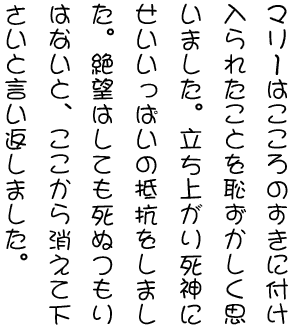 マリーはこころのすきに付け
入られたことを恥ずかしく思
いました。立ち上がり死神に
せいいっぱいの抵抗をしまし
た。絶望はしても死ぬつもり
はないと、ここから消えて下
さいと言い返しました。